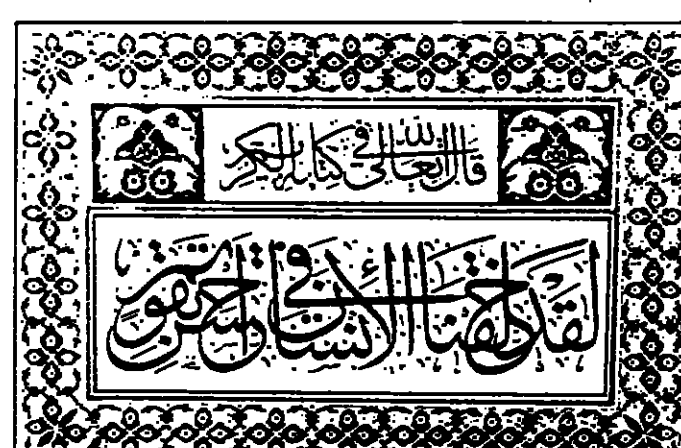 قال الله تعالى في كتابه الكريم
لقد خلقنا الأنسان في أحسن تقويم